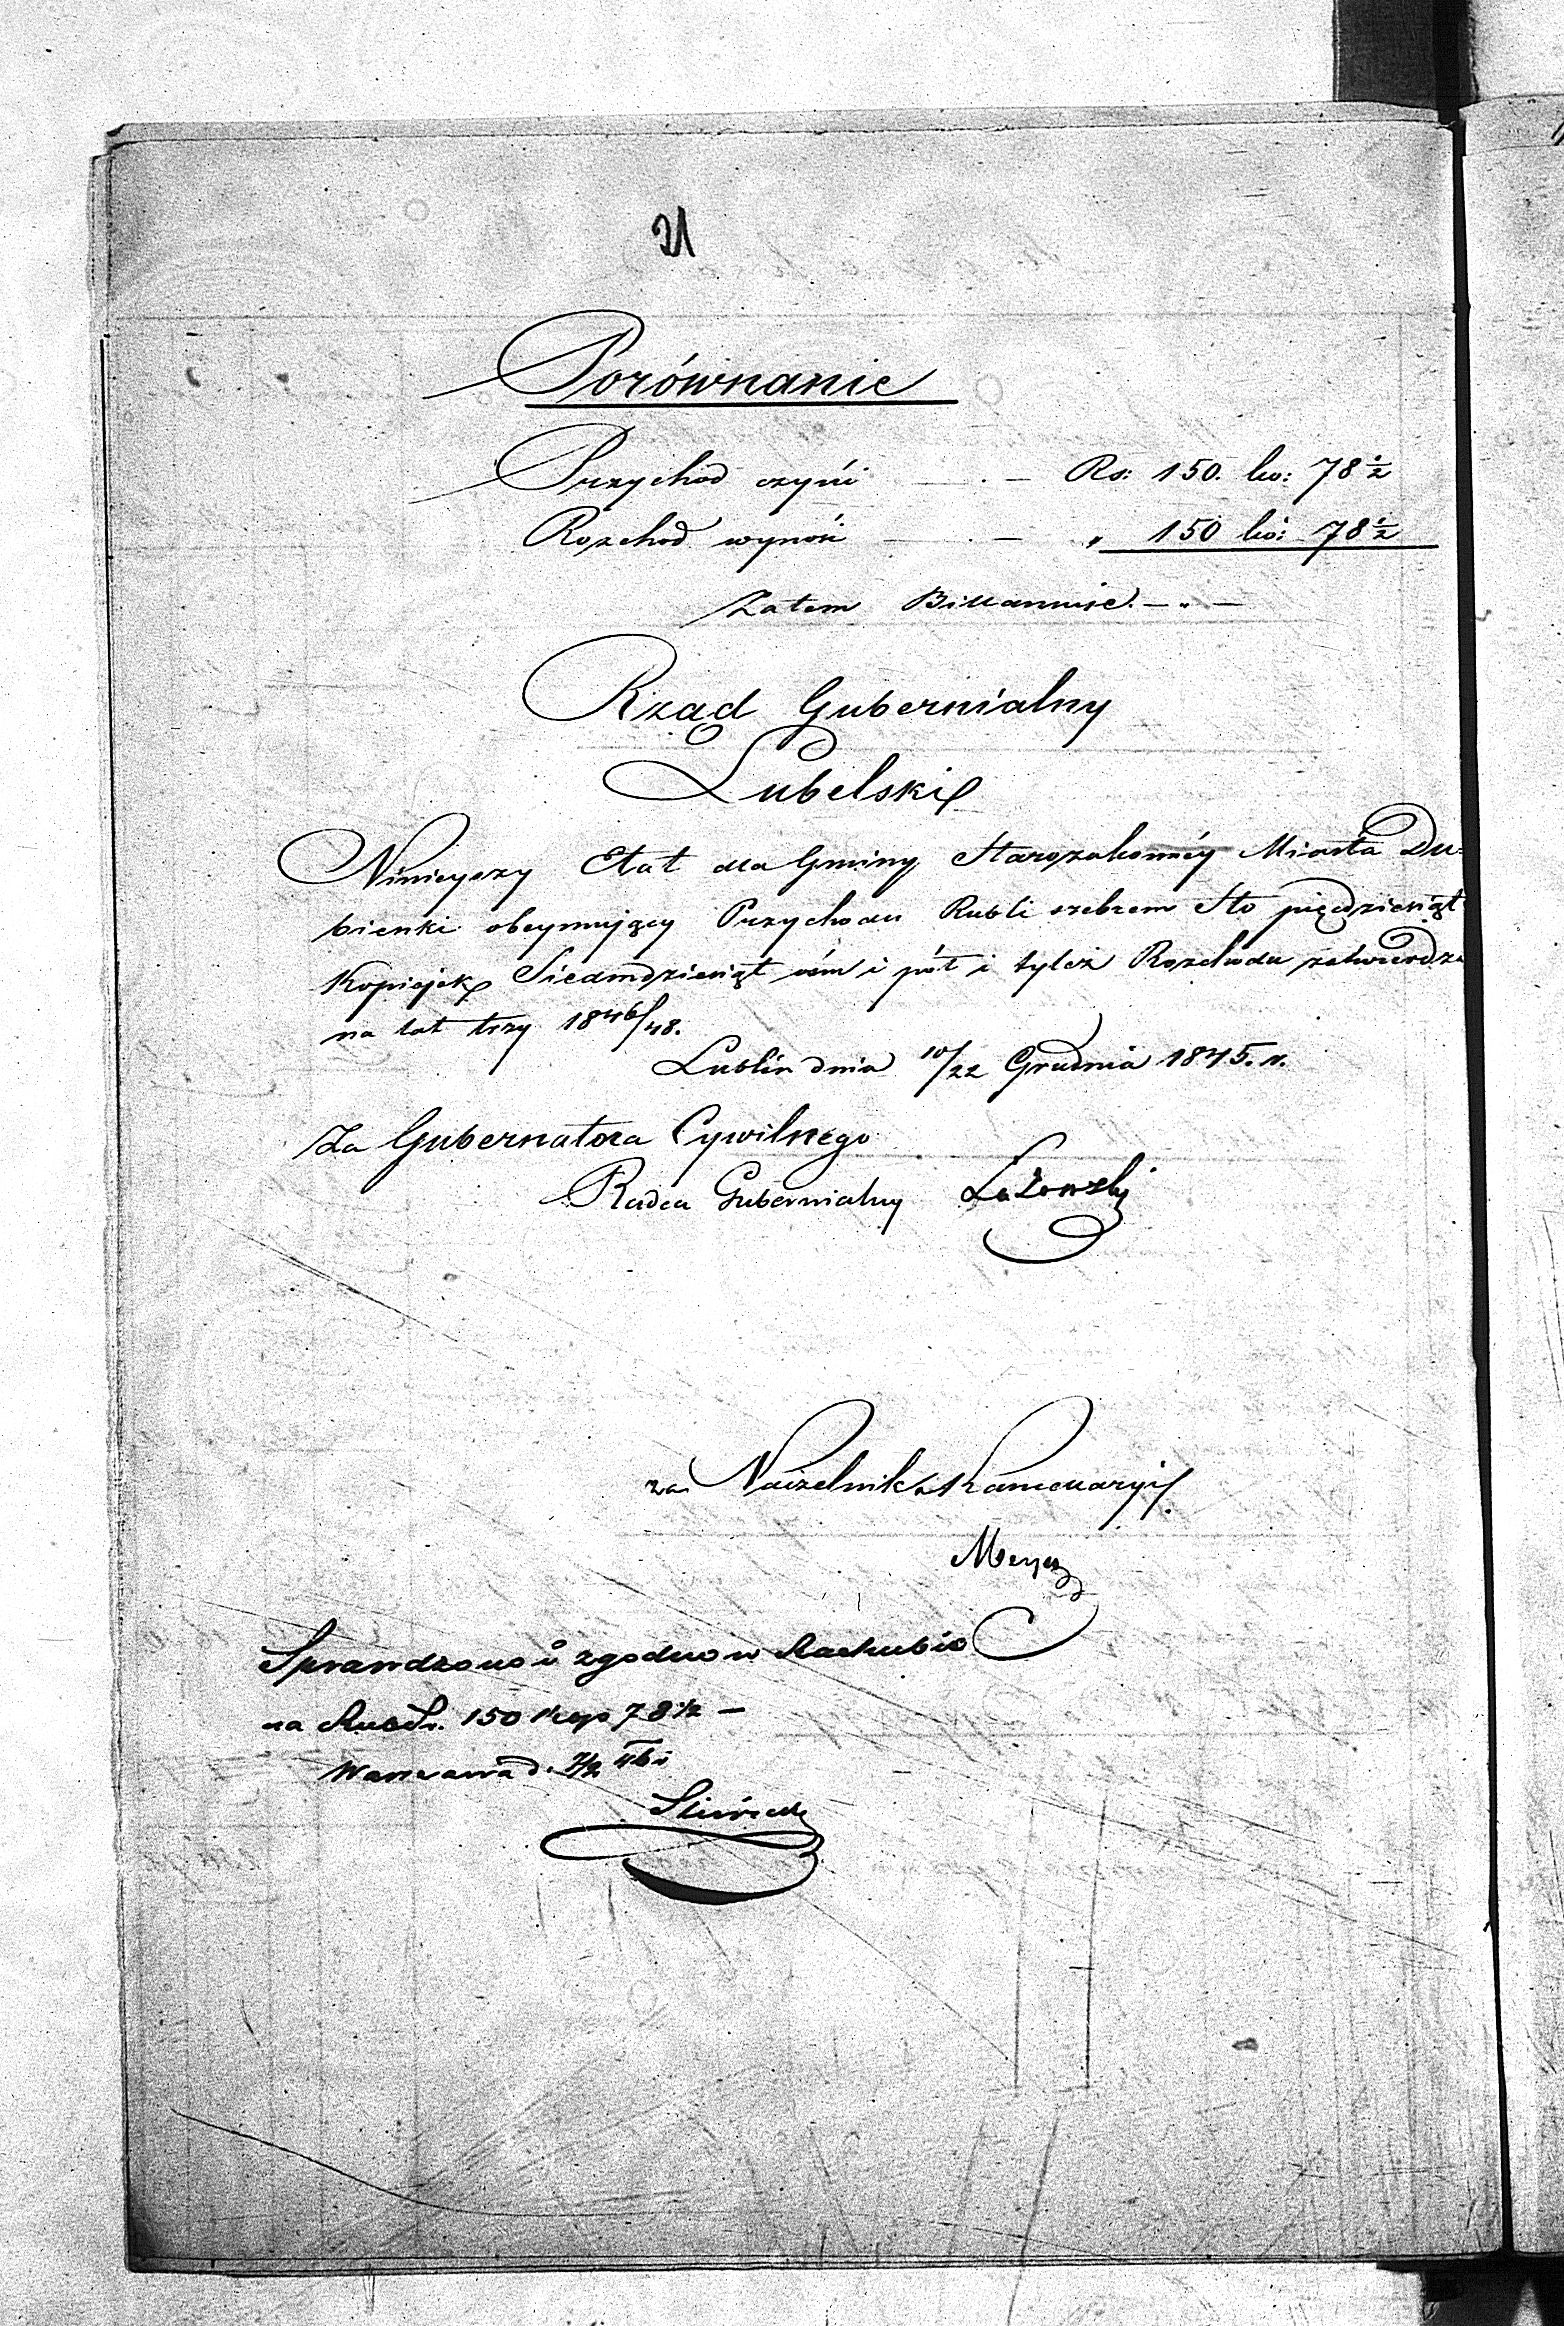 21
Porównanie
Przychod czyni — . — Rs: 150. ko: 78 1/2
Rozchod wynosi — . — „ 150 ko: 78 1/2
Zatem Billansuie. — „ —
Rząd Gubernialny
Lubelski
Ninieyszy Etat dla Gminy Starozakonnéy Miasta Du-
bienki obeymuiący Przychodu Rubli srebrem Sto pięćdziesiąt
Kopiejek Siedmdziesiąt ośm i pół i tyleż Rozchodu zatwierdza
na lat trzy 1846/48.
Lublin dnia 10/22 Grudnia 1845. r.
Za Gubernatora Cywilnego
Radca Gubernialny
za Naczelnika Kancellaryi
Meyer
Sprawdzono i zgodno w Rachubie
na Rub Sr. 150 kop 78 1/2 —
Warszawa d.